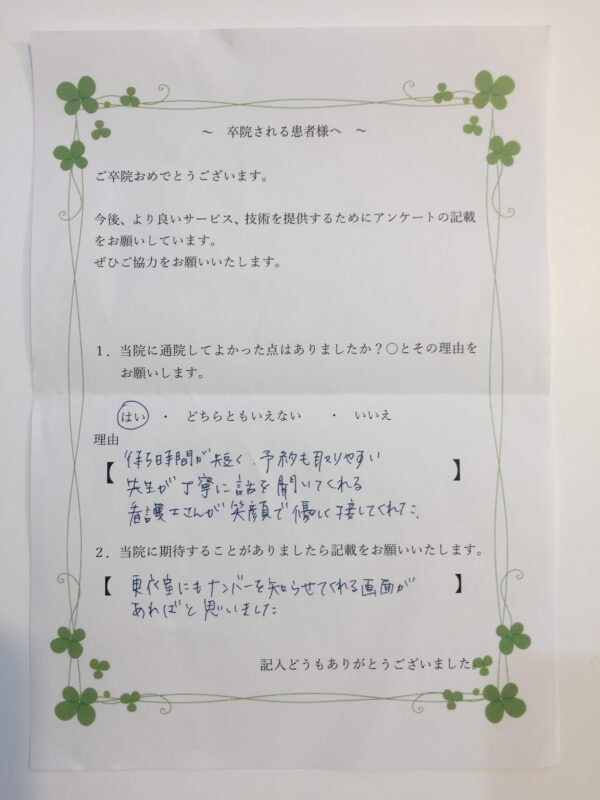 ～　卒院される患者様へ　～
ご卒院おめでとうございます。
今後、より良いサービス、技術を提供するためにアンケートの記載
をお願いしています。
ぜひご協力をお願いいたします。
１．当院に通院してよかった点はありましたか？〇とその理由を
お願いします。
はい　・　どちらともいえない　・　いいえ
理由
【待ち時間が短く、予約も取りやすい
先生が丁寧に話を聞いてくれる
看護士さんが笑顔で優しく接してくれた。】
２．当院に期待することがありましたら記載をお願いいたします。
【更衣室にもナンバーを知らせてくれる画面が
あればと思いました】
記入どうもありがとうございました。